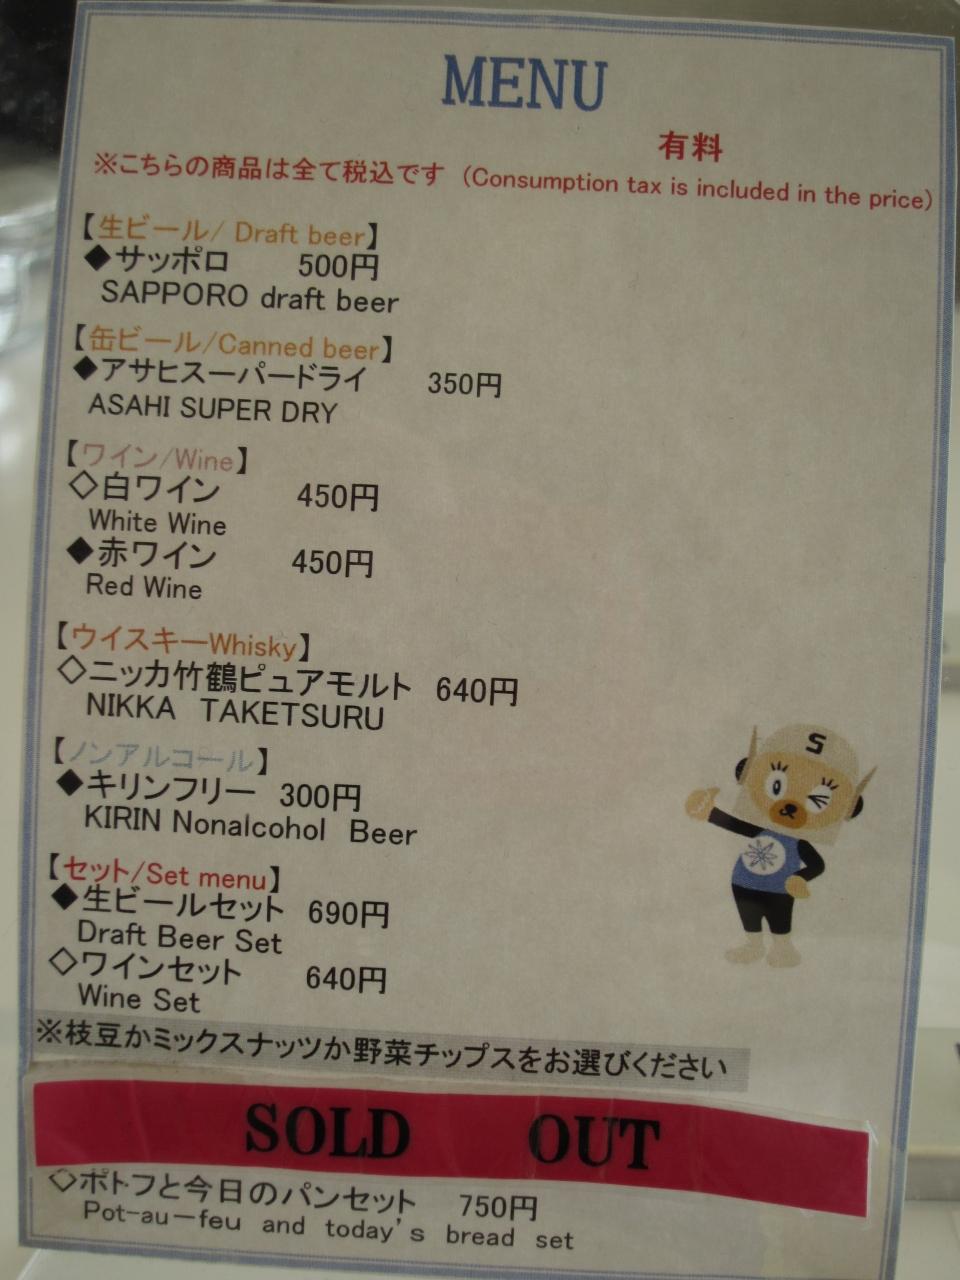 MENU
有料
※こちらの商品は全て税込です (Consumption tax is included in the price)
【生ビール/ Draft beer】
◆サッポロ 500円
SAPPORO draft beer
【缶ビール/Canned beer】
◆アサヒスーパードライ 350円
ASAHI SUPER DRY
【ワイン/Wine】
◇白ワイン 450円
White Wine
◆赤ワイン 450円
Red Wine
【ウイスキーWhisky】
◇ニッカ竹鶴ピュアモルト 640円
NIKKA TAKETSURU
【ノンアルコール】
◆キリンフリー 300円
KIRIN Nonalcohol Beer
S
【セット/Set menu】
◆生ビールセット 690円
Draft Beer Set
◇ワインセット 640円
Wine Set
※枝豆かミックスナッツか野菜チップスをお選びください
SOLD OUT
◇ポトフと今日のパンセット 750円
Pot-au-feu and today's bread set